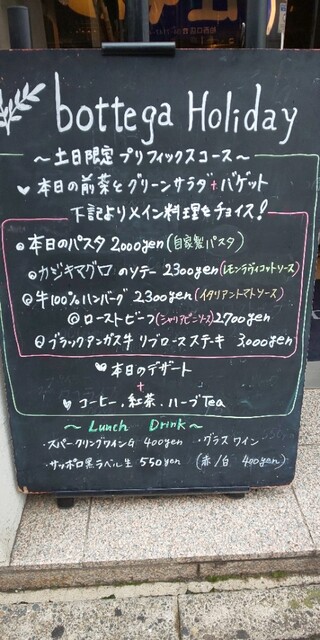 bottega Holiday
～土日限定 プリフィックスコース～
♥ 本日の前菜とグリーンサラダ + バゲット
下記よりメイン料理をチョイス!
本日のパスタ 2000yen (自家製パスタ)
カジキマグロ のソテー 2300yen (レモンラヴィゴットソース)
牛100%ハンバーグ 2300yen (イタリアントマトソース)
ローストビーフ (シャリアピンソース) 2700yen
ブラックアンガス牛 リブロースステーキ 3000yen
♥ 本日のデザート
+
♥ コーヒー、紅茶、ハーブTea
～ Lunch Drink ～
・スパークリングワイン 400yen ・グラスワイン
・サッポロ黒ラベル生 550yen (赤/白 400yen)